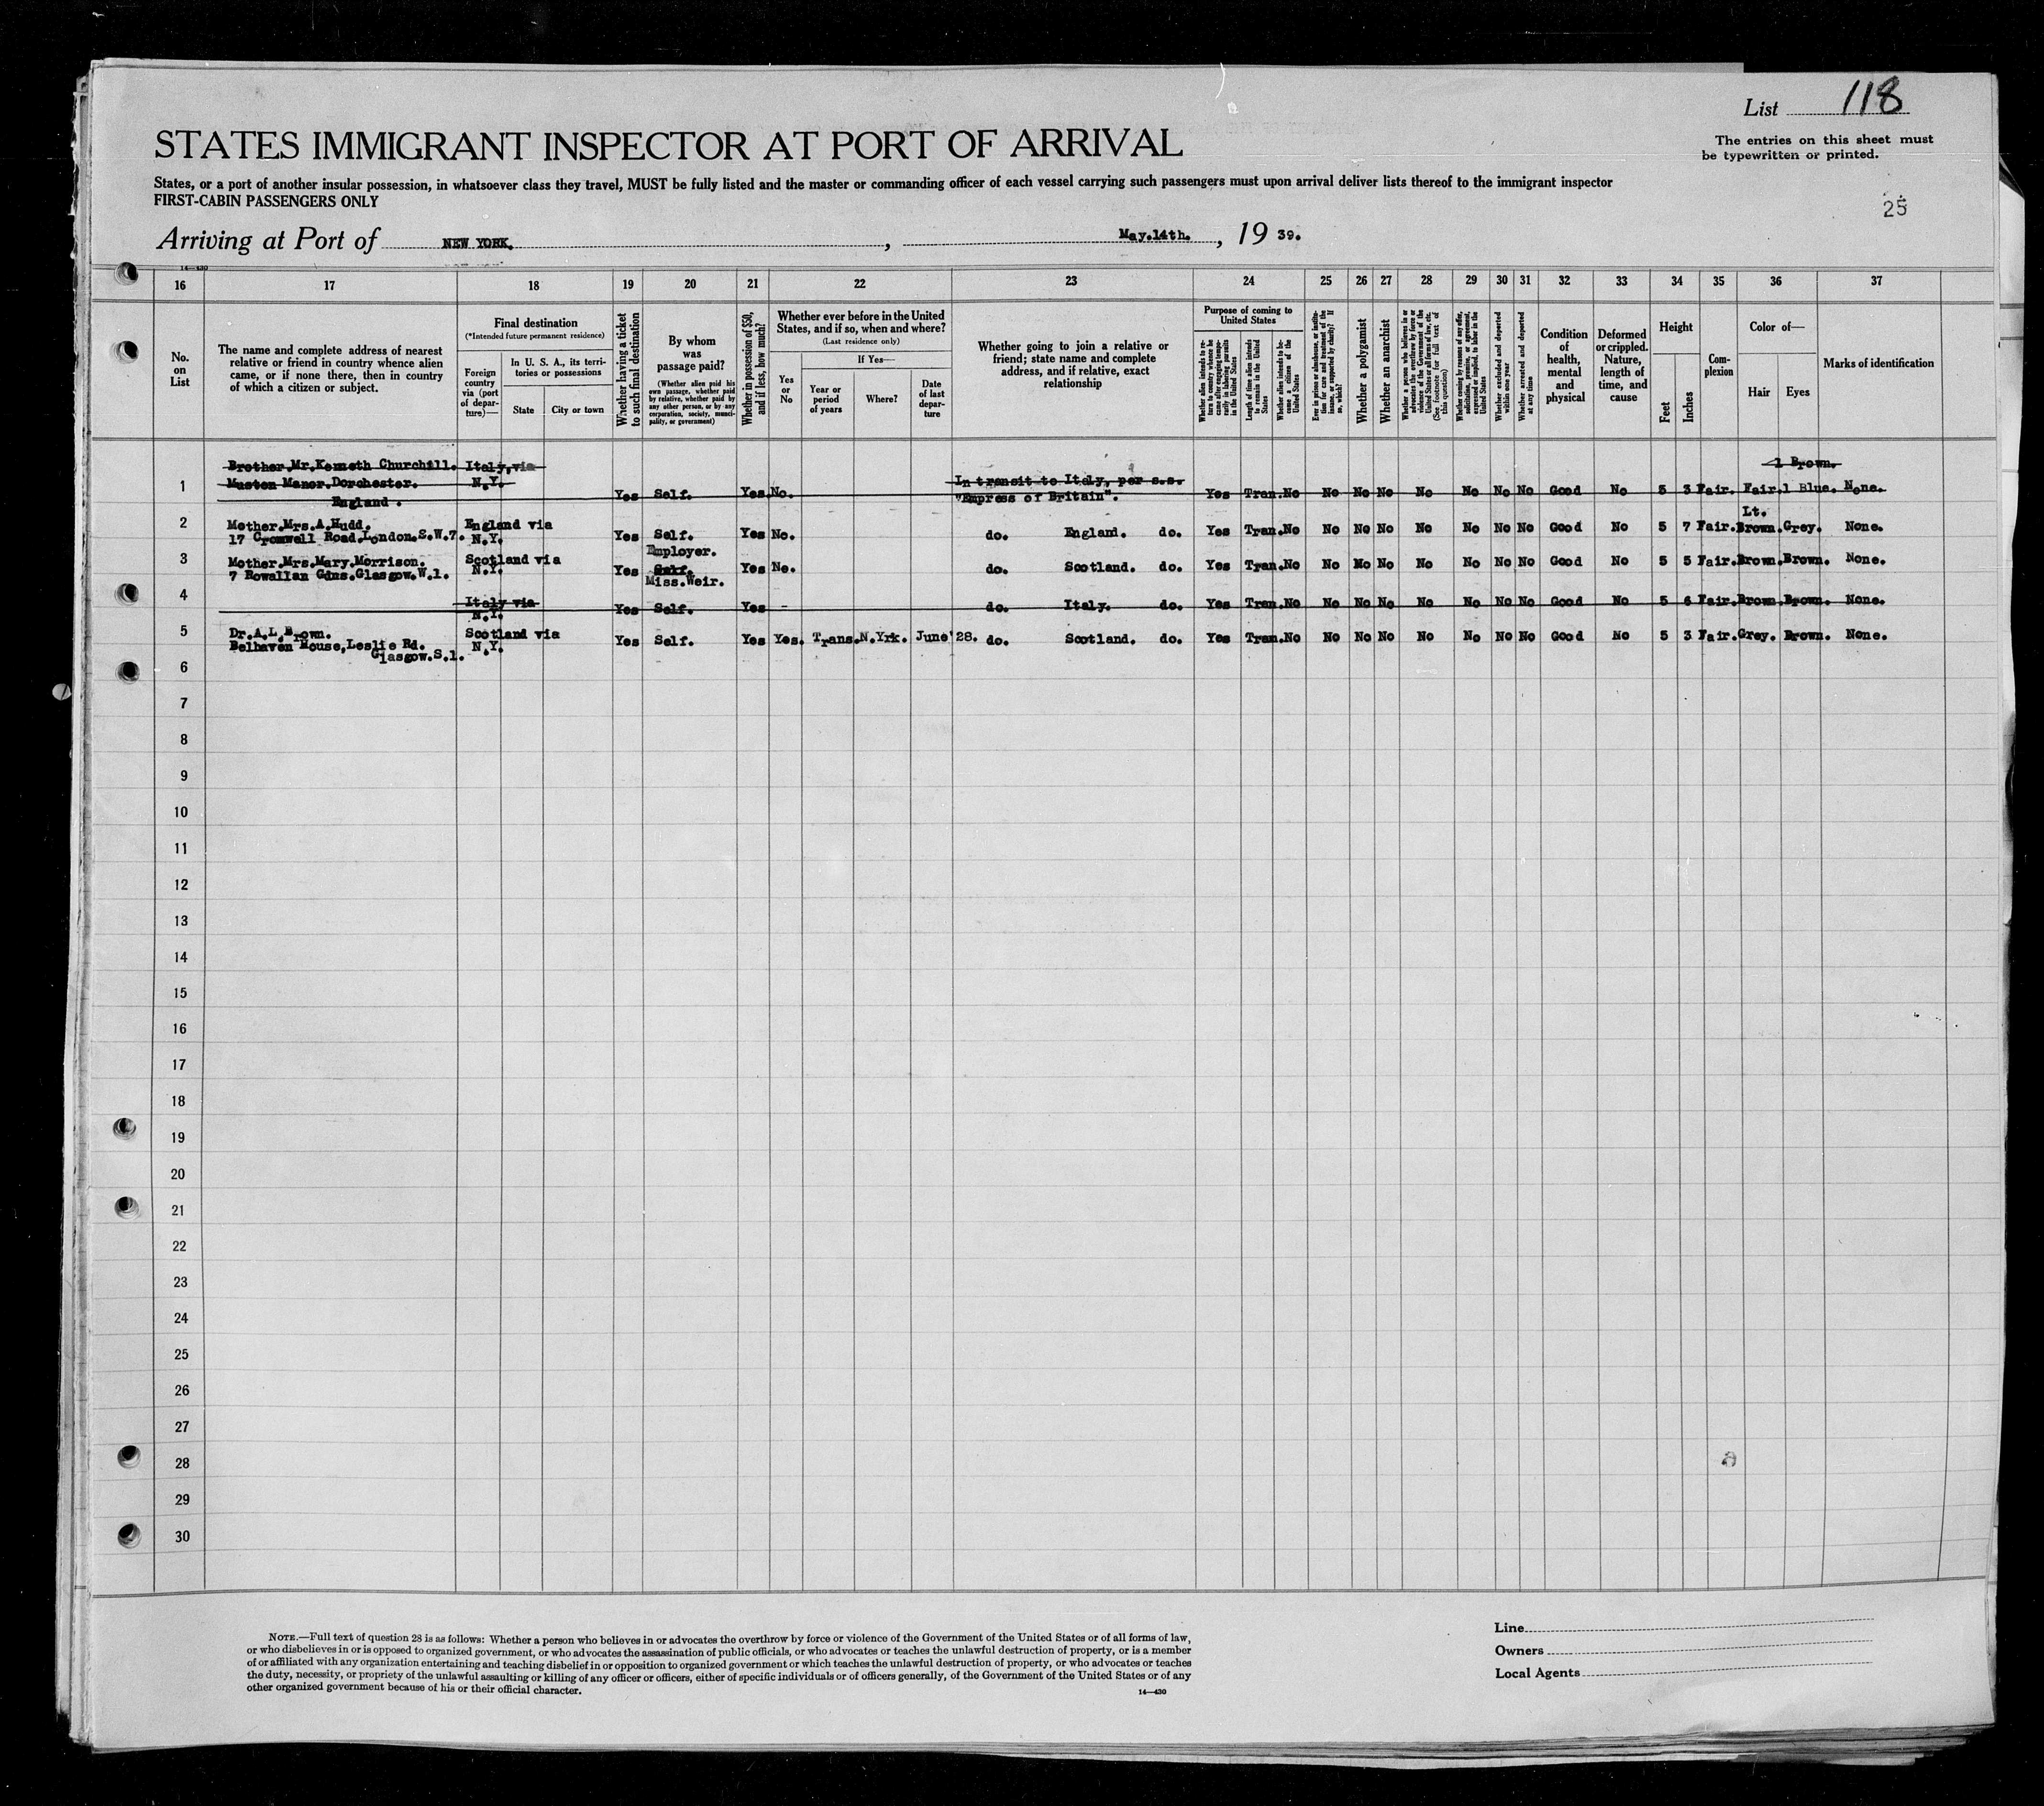 List 118
The entries on this sheet must
be typewritten or printed.
STATES IMMIGRANT INSPECTOR AT PORT OF ARRIVAL
States, or a port of another insular possession, in whatsoever class they travel, MUST be fully listed and the master or commanding officer of each vessel carrying such passengers must upon arrival deliver lists thereof to the immigrant inspector
FIRST-CABIN PASSENGERS ONLY
25
Arriving at Port of NEW YORK. , May.14th. , 19 39.
14—430
16 17 18 19 20 21 22 23 24 25 26 27 28 29 30 31 32 33 34 35 36 37
No. on List
The name and complete address of nearest relative or friend in country whence alien came, or if none there, then in country of which a citizen or subject.
Final destination
(*Intended future permanent residence)
Foreign country via (port of departure)—
In U. S. A., its territories or possessions
State
City or town
Whether having a ticket to such final destination
By whom was passage paid?
(Whether alien paid his own passage, whether paid by relative, whether paid by any other person, or by any corporation, society, municipality, or government)
Whether in possession of $50, and if less, how much?
Whether ever before in the United States, and if so, when and where?
(Last residence only)
Yes or No
If Yes—
Year or period of years
Where?
Date of last departure
Whether going to join a relative or friend; state name and complete address, and if relative, exact relationship
Purpose of coming to United States
Whether alien intends to return to country whence he came after engaging temporarily in laboring pursuits in the United States
Length of time alien intends to remain in the United States
Whether alien intends to become a citizen of the United States
Ever in prison or almshouse, or institution for care and treatment of the insane, or supported by charity? If so, which?
Whether a polygamist
Whether an anarchist
Whether a person who believes in or advocates the overthrow by force or violence of the Government of the United States or all forms of law, etc. (See footnote for full text of this question)
Whether coming by reason of any offer, solicitation, promise, or agreement, expressed or implied, to labor in the United States
Whether excluded and deported within one year
Whether arrested and deported at any time
Condition of health, mental and physical
Deformed or crippled. Nature, length of time, and cause
Height
Feet
Inches
Complexion
Color of—
Hair
Eyes
Marks of identification
Brother.Mr.Kenneth Churchill. Italy,via 1 Brown.
1 Muston Manor.Dorchester. N.Y. In transit to Italy, per s.s.
England. Yes Self. Yes No. "Empress of Britain". Yes Tran.No No No No No No No No Good No 5 3 Fair. Fair.1 Blue. None.
Lt.
2 Mother.Mrs.A.Hudd. England via
17 Cromwell Road.London.S.W.7. N.Y. Yes Self. Yes No. do. England. do. Yes Tran.No No No No No No No No Good No 5 7 Fair.Brown.Grey. None.
Employer.
3 Mother.Mrs.Mary.Morrison. Scotland via
7 Rowallan Gdns.Glasgow.W.1. N.Y. Yes Self. Yes No. do. Scotland. do. Yes Tran.No No No No No No No No Good No 5 5 Fair.Brown.Brown. None.
Miss.Weir.
4 Italy via Yes Self. Yes - do. Italy. do. Yes Tran.No No No No No No No No Good No 5 6 Fair.Brown.Brown. None.
N.Y.
5 Dr.A.L.Brown. Scotland via Yes Self. Yes Yes. Trans.N.Yrk. June'28. do. Scotland. do. Yes Tran.No No No No No No No No Good No 5 3 Fair.Grey. Brown. None.
Belhaven House,Leslie Rd. N.Y.
Glasgow.S.1.
6
7
8
9
10
11
12
13
14
15
16
17
18
19
20
21
22
23
24
25
26
27
28
29
30
NOTE.—Full text of question 28 is as follows: Whether a person who believes in or advocates the overthrow by force or violence of the Government of the United States or of all forms of law,
or who disbelieves in or is opposed to organized government, or who advocates the assassination of public officials, or who advocates or teaches the unlawful destruction of property, or is a member
of or affiliated with any organization entertaining and teaching disbelief in or opposition to organized government or which teaches the unlawful destruction of property, or who advocates or teaches
the duty, necessity, or propriety of the unlawful assaulting or killing of any officer or officers, either of specific individuals or of officers generally, of the Government of the United States or of any
other organized government because of his or their official character.
14—430
Line
Owners
Local Agents